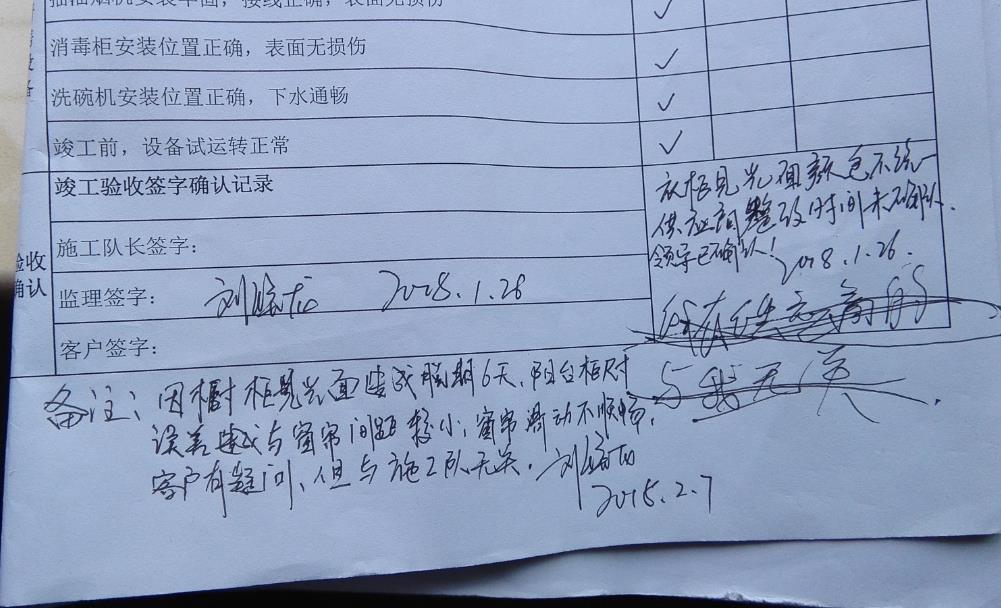 抽油烟机安装牢固，接线正确，表面无损伤
消毒柜安装位置正确，表面无损伤
洗碗机安装位置正确，下水通畅
竣工前，设备试运转正常
验收
确认
竣工验收签字确认记录
施工队长签字：
监理签字：
2018.1.28
客户签字：
衣柜见光面颜色不统一
供应商整改时间未确认.
领导已确认！
2018.1.26.
与我无关.
备注：因橱柜见光面造成脱期6天，阳台柜尺寸
误差造成与窗帘间距较小，窗帘滑动不顺畅，
客户有疑问，但与施工队无关.
2018.2.7